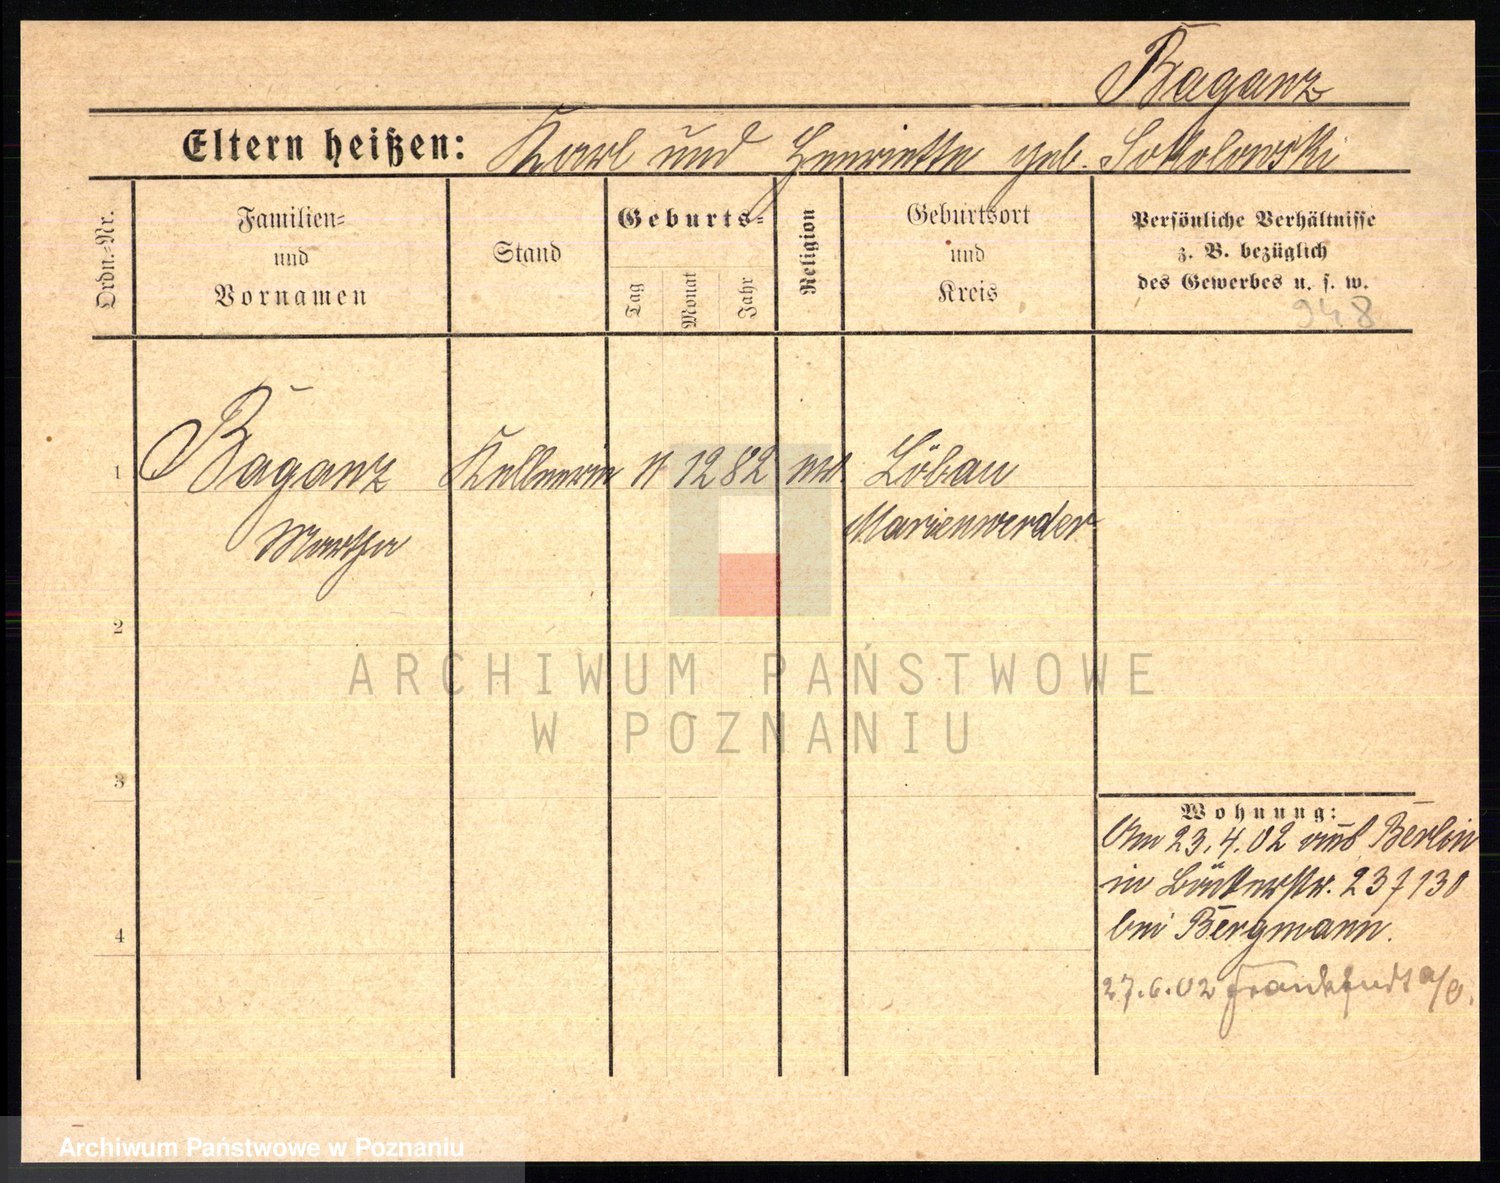 Baganz
Eltern heißen: Karl und Henriette geb. Sokolowski
Ordn.=Nr.
Familien=
und
Vornamen
Stand
Geburts=
Tag
Monat
Jahr
Religion
Geburtsort
und
Kreis
Persönliche Verhältnisse
z. B. bezüglich
des Gewerbes u. s. w.
948
1 Baganz Kellnerin 12 82 Löbau
Martha Marienwerder
2
3
4
Wohnung:
Am 23.4.02 aus Berlin
in 23
bei Bergmann.
27.6.02 Frankfurt a/O.
ARCHIWUM PAŃSTWOWE
W POZNANIU
Archiwum Państwowe w Poznaniu